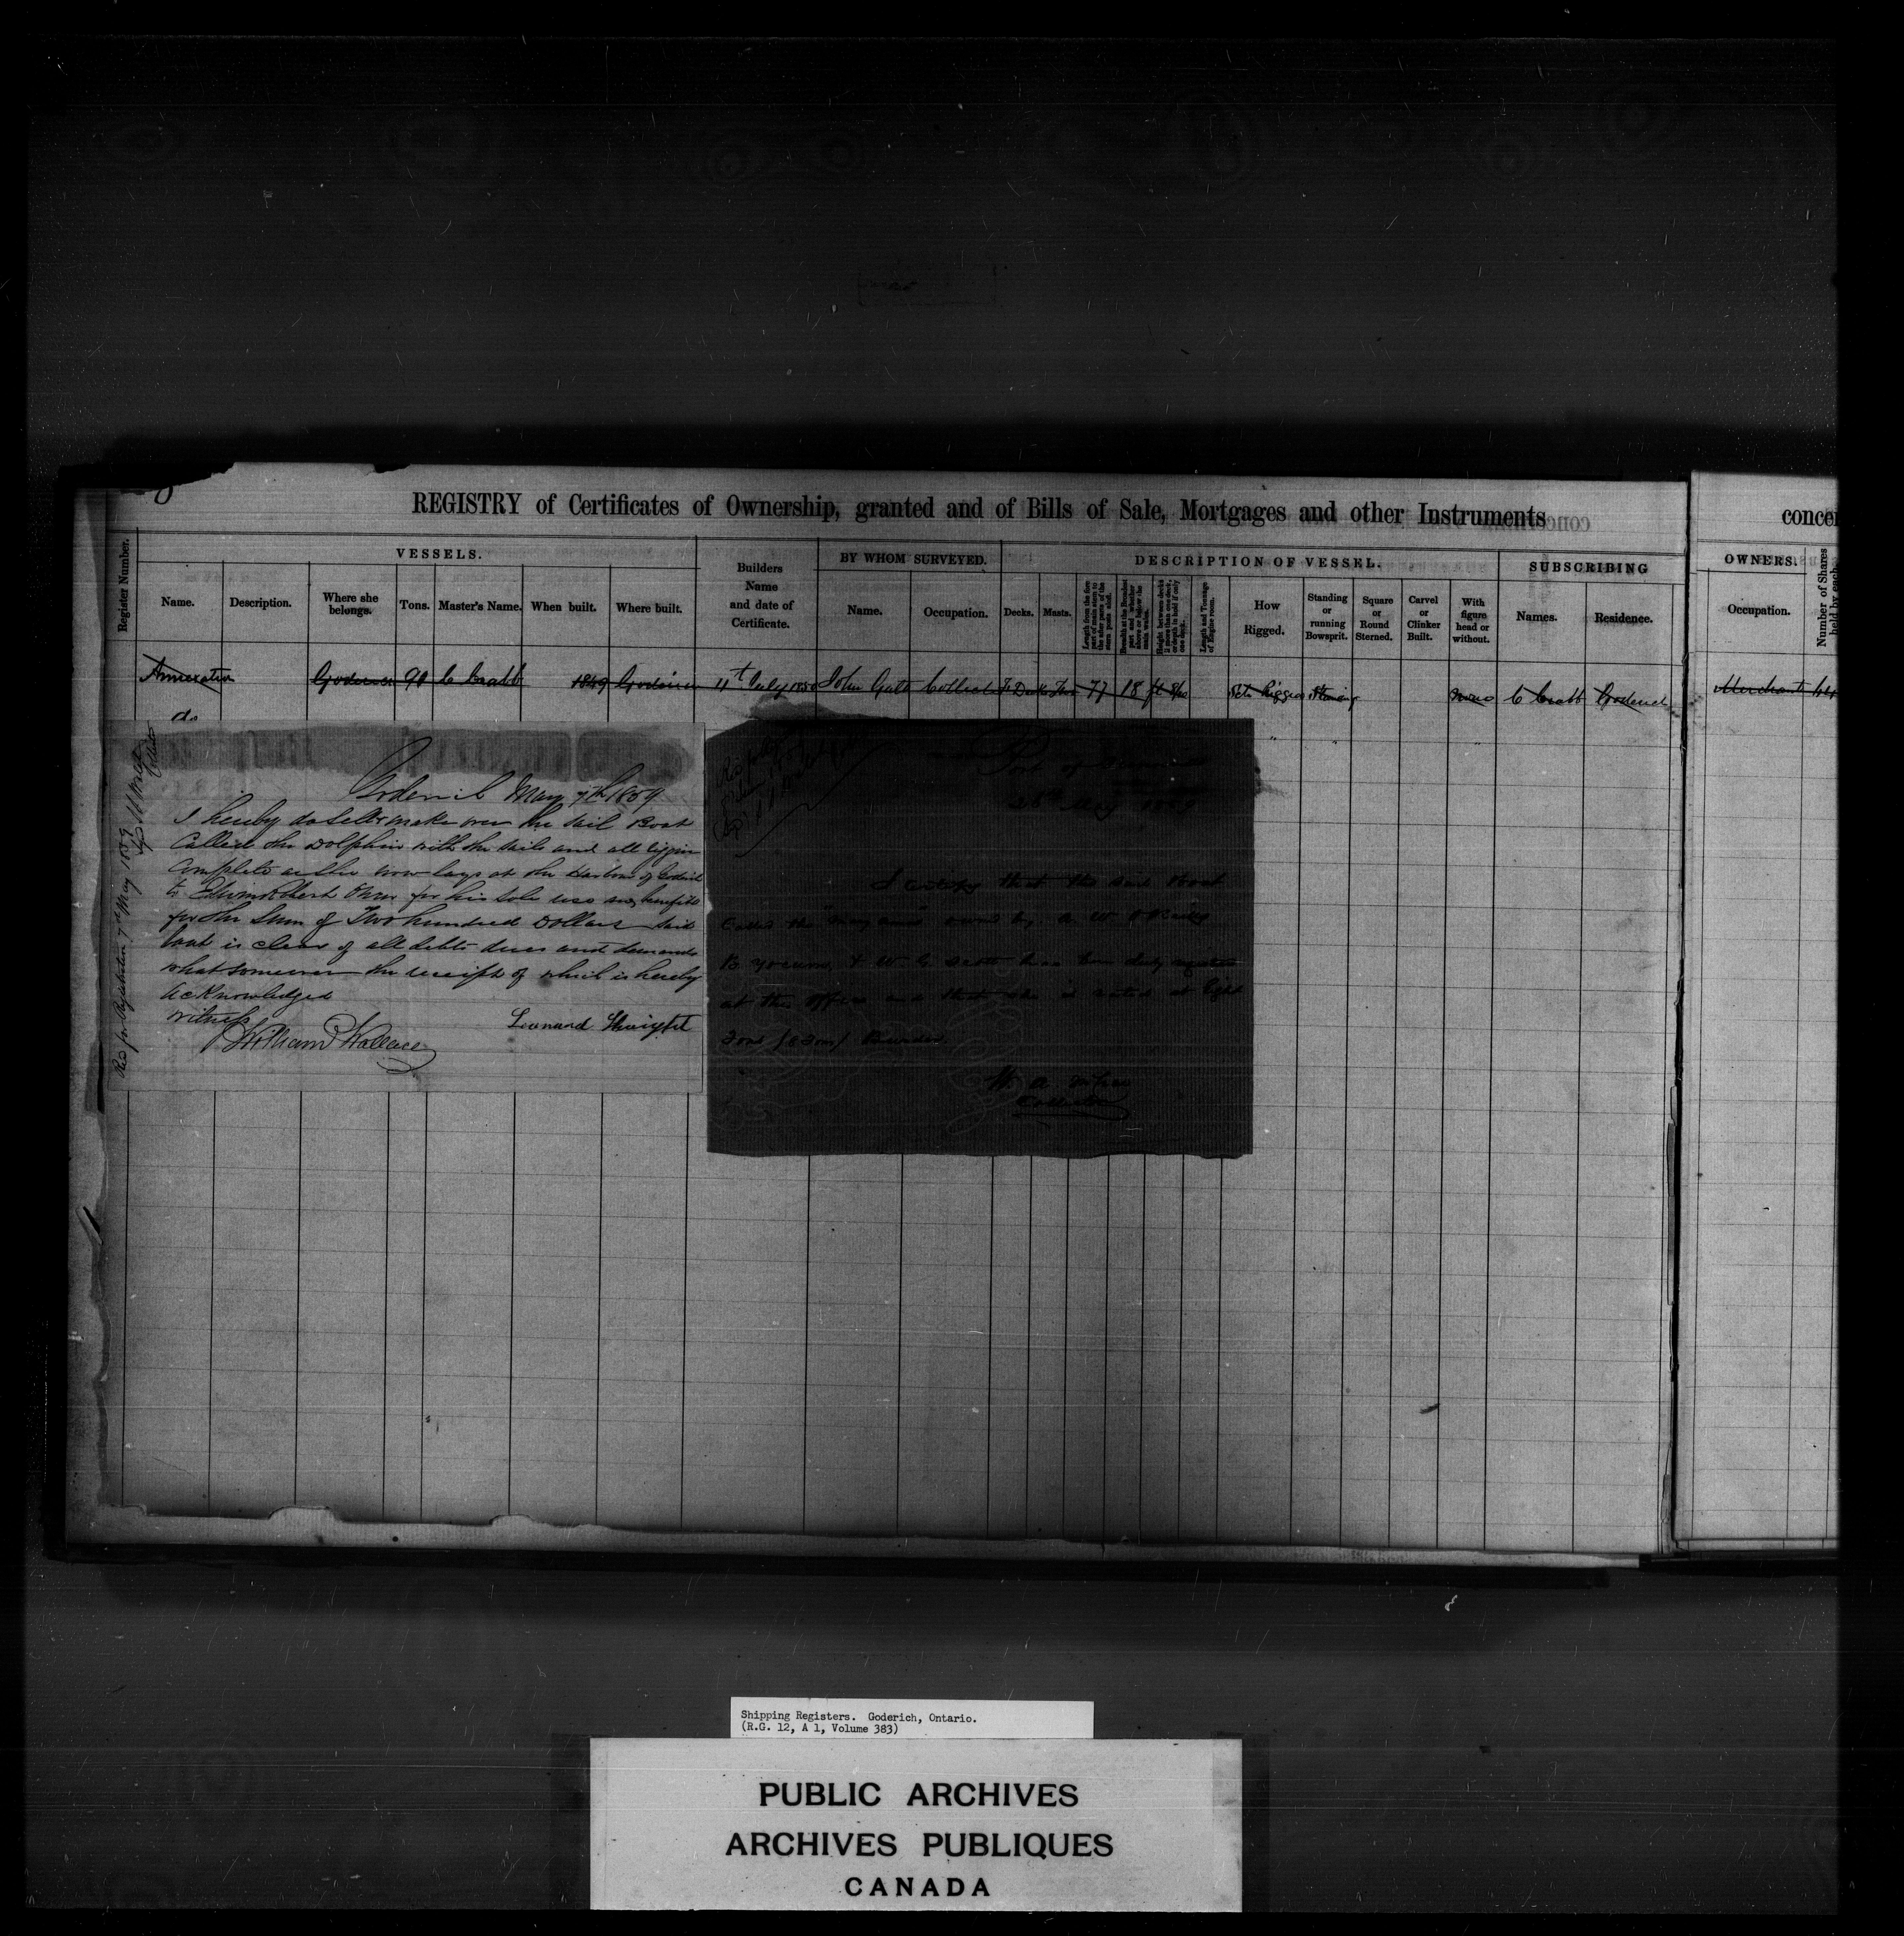 REGISTRY of Certificates of Ownership, granted and of Bills of Sale, Mortgages and other Instruments
concer
Register Number.
VESSELS.
Name.
Description.
Where she belongs.
Tons.
Master's Name.
When built.
Where built.
Builders Name and date of Certificate.
BY WHOM SURVEYED.
Name.
Occupation.
DESCRIPTION OF VESSEL.
Decks.
Masts.
Length from the fore part of main stem to the after parts of the stern posts aloft.
Breadth at the Broadest part and whether above or below the main wales.
Height between decks if more than one deck, or depth in hold if only one deck.
Length and Tonnage of Engine room.
How Rigged.
Standing or running Bowsprit.
Square or Round Sterned.
Carvel or Clinker Built.
With figure head or without.
SUBSCRIBING
Names.
Residence.
OWNERS.
Occupation.
Number of Shares held by each
Annexation Goderich 90 C Crabb 1849 Goderich 11th July 1850 John Galt Collector 77 18 C Crabb Goderich Merchant
do
Goderich May 7th 1859
I hereby do sell & make over the sail Boat
Called the Dolphin with the sails and all riggin
Complete as she now lays at the Harbour of Goderich
to for his sole use and benefits
for the Sum of Two hundred Dollars said
boat is clear of all debts dues and demands
whatsomever the receipt of which is hereby
acknowledged
Witness
Leonard
William Wallace
Rec for Registration 7th May 1859
Port of
26th May 1859
I certify that the sail Boat
Called the owned by
B Young & W C Scott has been duly
at this office and that she is rated at Eight
Tons (8 Tons) Burden
Collector
Shipping Registers. Goderich, Ontario.
(R.G. 12, A 1, Volume 383)
PUBLIC ARCHIVES
ARCHIVES PUBLIQUES
CANADA